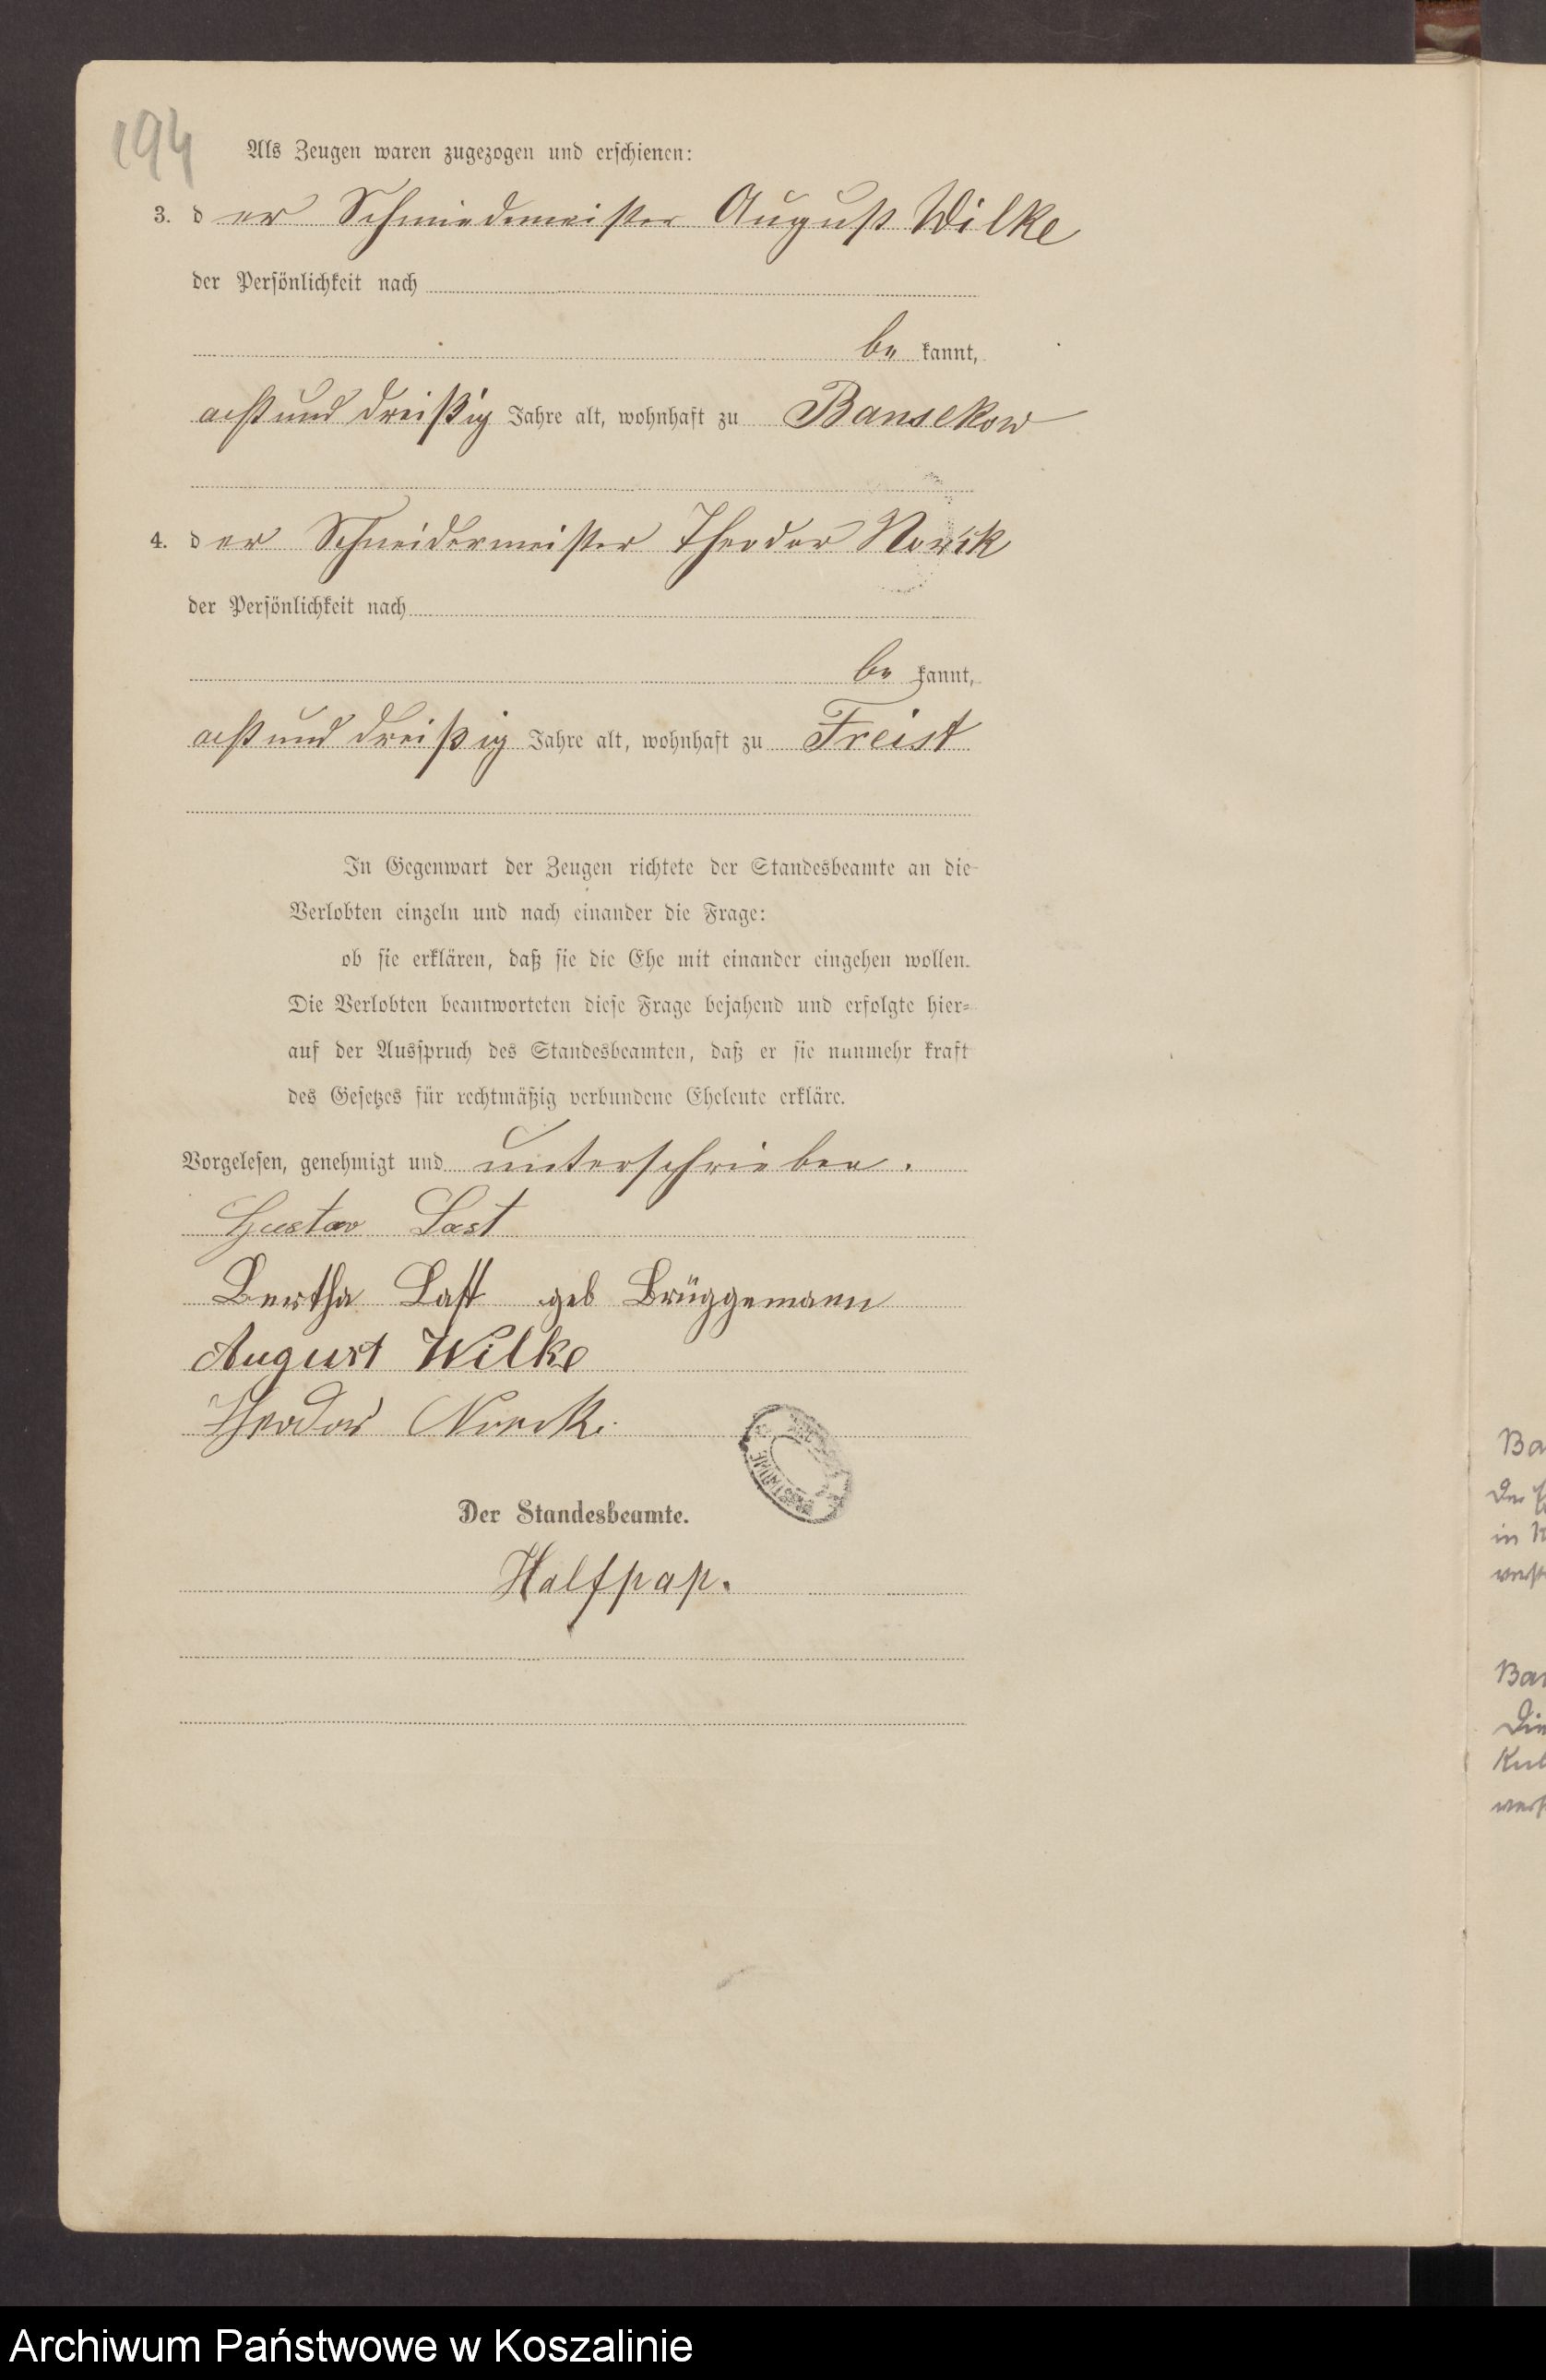 194
Als Zeugen waren zugezogen und erschienen:
3. der Schmiedemeister August Wilke
der Persönlichkeit nach
be kannt,
acht und dreißig Jahre alt, wohnhaft zu Bansekow
4. der Schneidermeister Theodor
der Persönlichkeit nach
be kannt,
acht und dreißig Jahre alt, wohnhaft zu Freist
In Gegenwart der Zeugen richtete der Standesbeamte an die
Verlobten einzeln und nach einander die Frage:
ob sie erklären, daß sie die Ehe mit einander eingehen wollen.
Die Verlobten beantworteten diese Frage bejahend und erfolgte hier-
auf der Ausspruch des Standesbeamten, daß er sie nunmehr kraft
des Gesetzes für rechtmäßig verbundene Eheleute erkläre.
Vorgelesen, genehmigt und unterschrieben.
Gustav Last
Bertha Last geb Brüggemann
August Wilke
Theodor
Der Standesbeamte.
Halfpap.
Archiwum Państwowe w Koszalinie